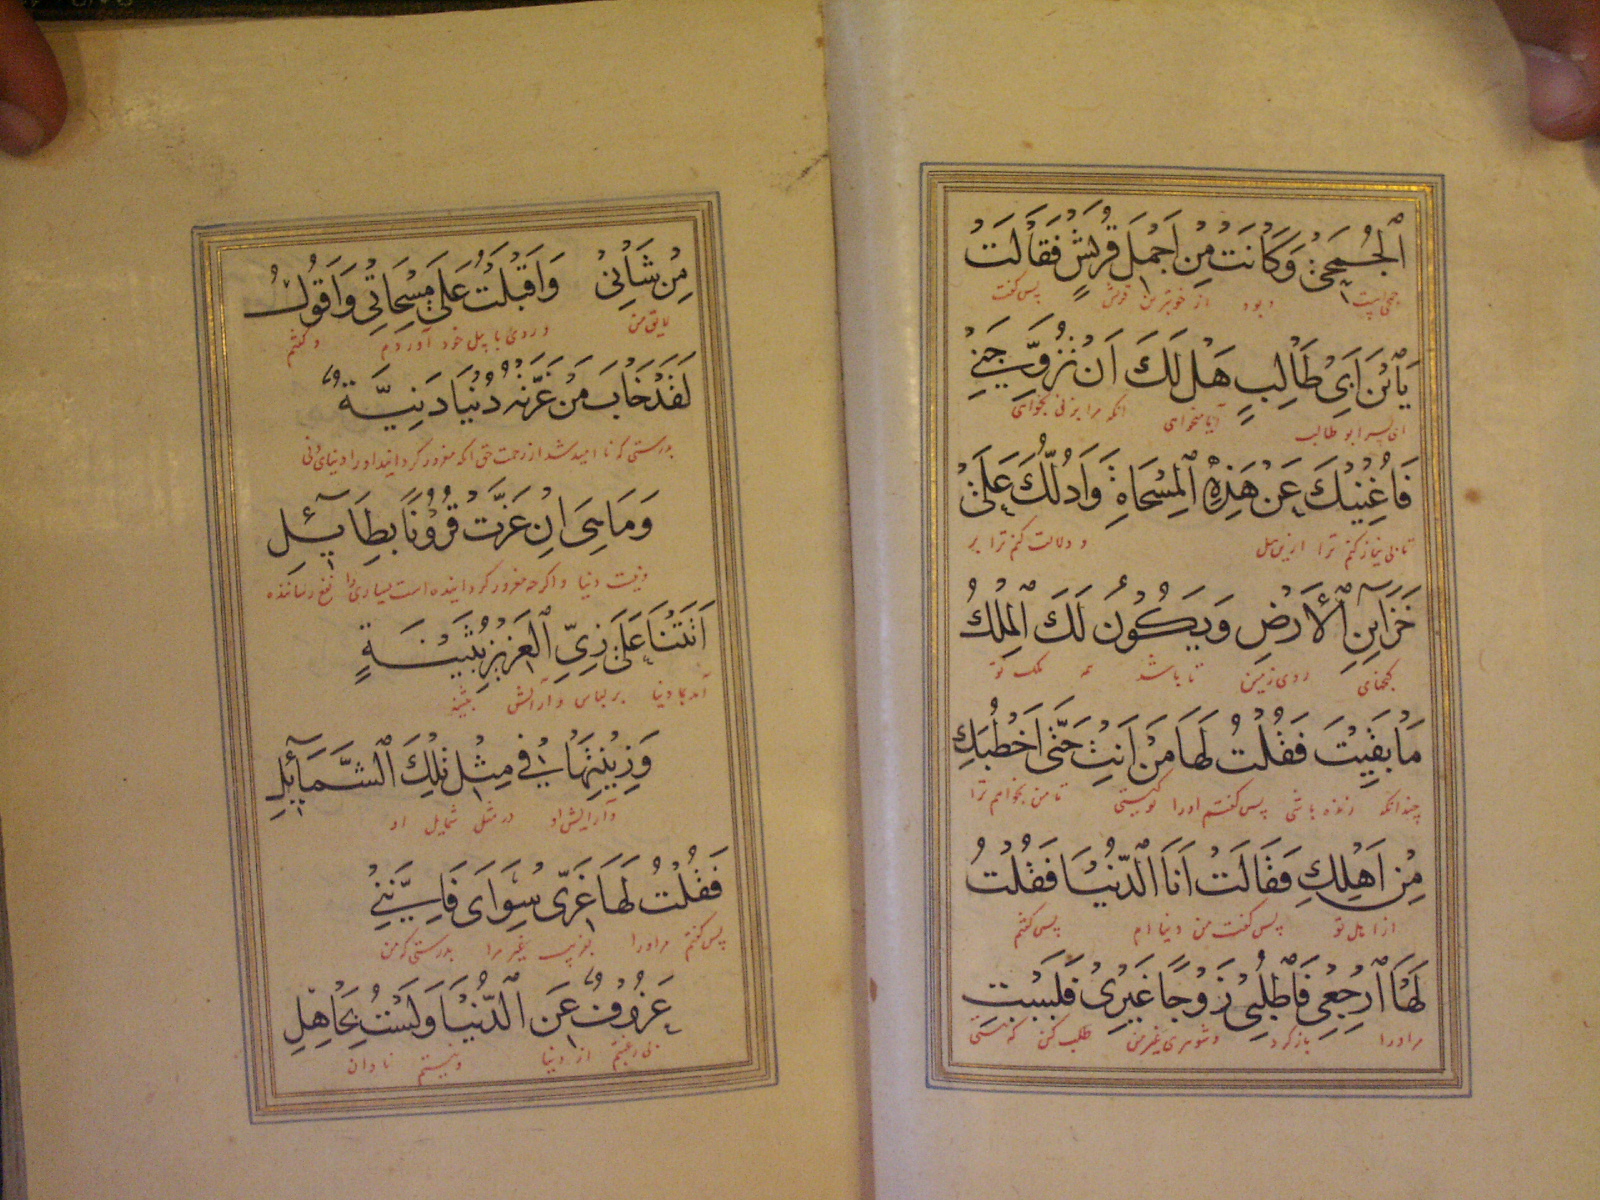 اَلْجُمَحِيِّ وَكَانَتْ مِنْ اَجْمَلِ قُرَيْشٍ فَقَالَتْ
و بود از خوبترین قریش پس گفت
يَا بْنَ اَبِيْ طَالِبٍ هَلْ لَكَ اَنْ تُزَوِّجَنِيْ
ای پسر ابو طالب آیا میخواهی انکه مرا بزنی بخواهی
فَاُغْنِيْكَ عَنْ هٰذِهِ الْمِسْحَاةِ وَاَدُلُّكَ عَلٰى
تا بی نیاز کنم ترا ازین بیل و دلالت کنم ترا بر
خَزَآئِنِ الْاَرْضِ وَيَكُوْنُ لَكَ الْمُلْكُ
گنجهای روی زمین تا باشد ملک تو
مَا بَقِيْتَ فَقُلْتُ لَهَا مَنْ اَنْتِ حَتّٰى اَخْطُبَكِ
چندانکه زنده باشی پس گفتم اورا تو کیستی تا من بخواهم ترا
مِنْ اَهْلِكِ فَقَالَتْ اَنَا الدُّنْيَا فَقُلْتُ
از اهل تو پس گفت من دنیا ام پس گفتم
لَهَا ارْجِعِيْ فَاطْلُبِيْ زَوْجًا غَيْرِيْ فَلَسْتِ
مر اورا باز کرد و شوهری غیر من طلب کن که نیستی
مِنْ شَاْنِيْ وَاَقْبَلْتُ عَلٰى مِسْحَاتِيْ وَاَقُوْلُ
لایق من و روی با بیل خود آوردم و گفتم
لَقَدْ خَابَ مَنْ غَرَّتْهُ دُنْيَا دَنِيَّةٌ
بدرستی که نا امید شد از رحمت حق انکه مغرور کردانید اورا دنیای دنی
وَمَا هِىَ اِنْ غَرَّتْ قُرُوْنًا بِطَآئِلِ
و نیست دنیا و اکر چه مغرور کرداینده است بسیاری را نفع رسانده
اَتَتْنَا عَلٰى زِيِّ الْعَزِيْزِ بُثَيْنَةٍ
آمد بما دنیا بر لباس و آرایش بثینه
وَزِيْنَتُهَا فِيْ مِثْلِ تِلْكَ الشَّمَآئِلِ
و آرایش او در مثل شمایل او
فَقُلْتُ لَهَا غُرِّىْ سِوَاىَ فَاِنَّنِيْ
پس گفتم مر اورا بفریب غیر مرا بدرستی که من
عَزُوْفٌ عَنِ الدُّنْيَا وَلَسْتُ بِجَاهِلِ
بی رغبتم از دنیا و نیستم نادان